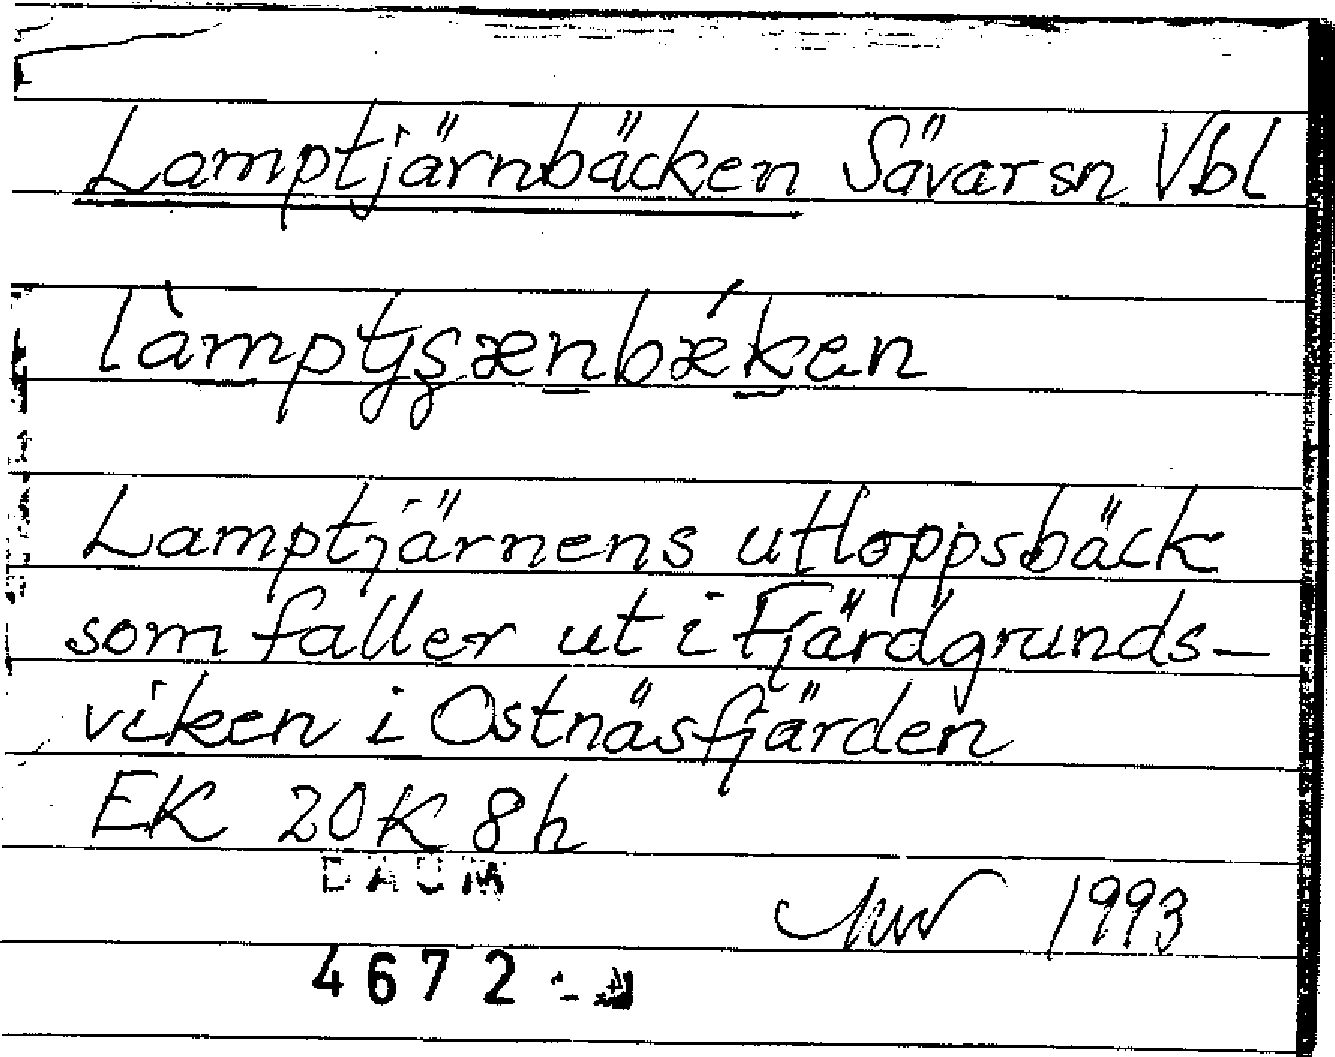 Lamptjärnbäcken Sävar sn Vbl
Lamptjärnens utloppsbäck
som faller ut i Fjärdgrunds-
viken i Ostnäsfjärden
EK 20K 8h
DAUM
1993
4672